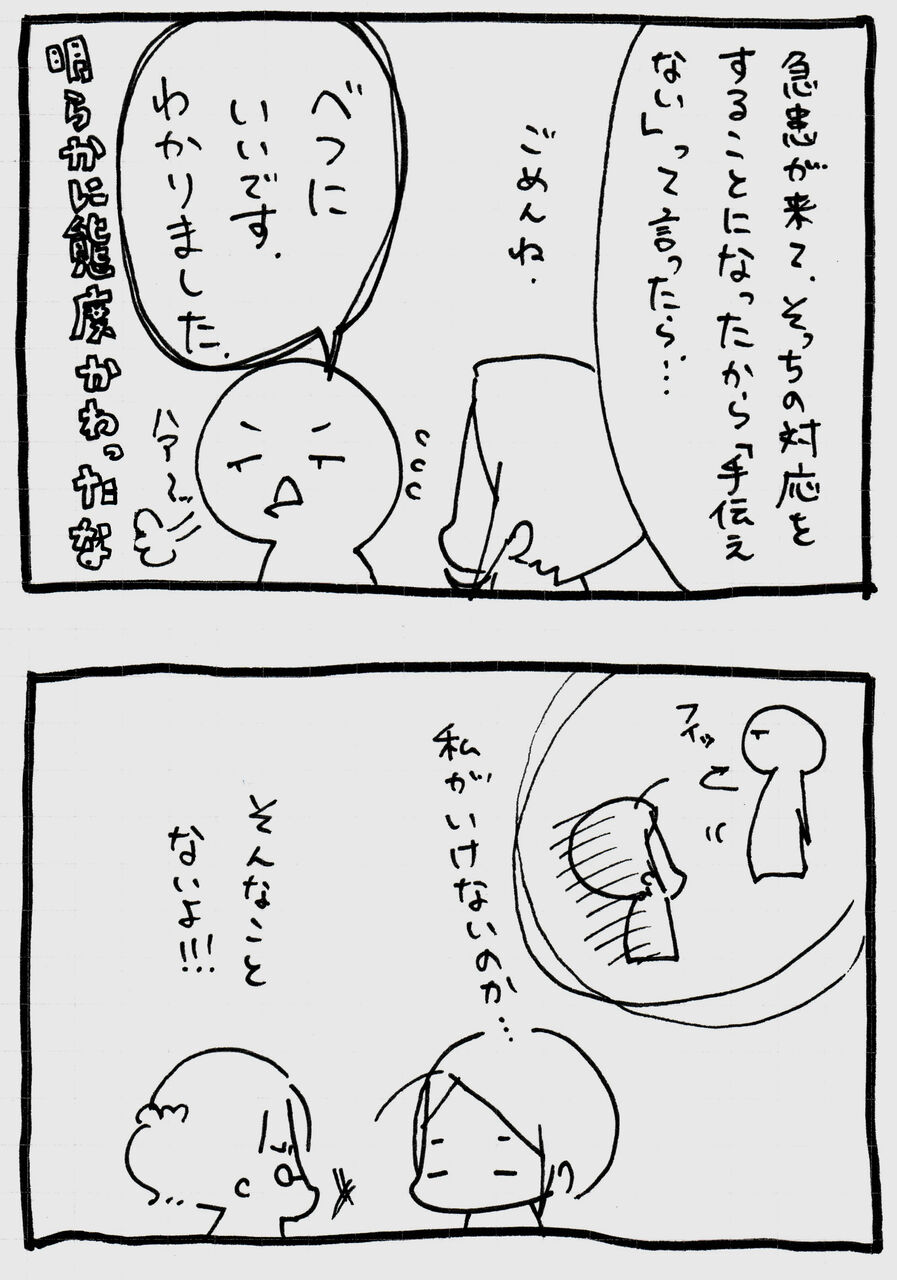 急患が来て、そっちの対応を
することになったから「手伝え
ない」って言ったら…
ごめんね.
べつに
いいです.
わかりました.
ハァ〜ッ
明らかに態度かわったな
フイッ
私がいけないのか…
そんなこと
ないよ!!!